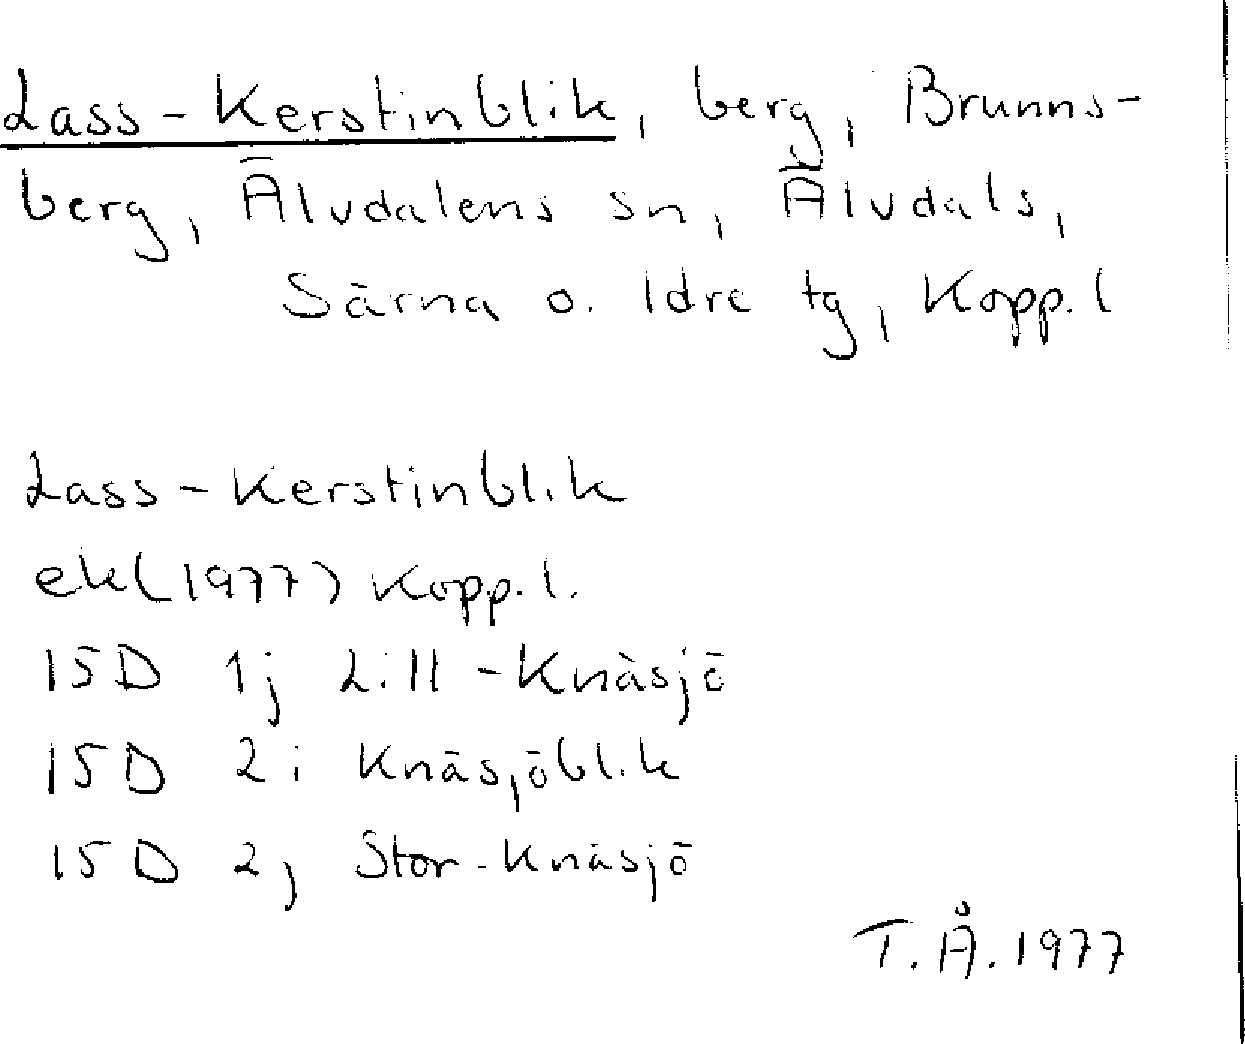 Lass-Kerstinblik, berg, Brunns-
berg, Älvdalens sn, Älvdals,
Särna o. Idre tg, Kopp. l
Lass-Kerstinblik
ek(1977) Kopp. l.
15D 1j Lill-Knäsjö
15D 2i Knäsjöblik
15D 2j Stor-Knäsjö
T.Å. 1977